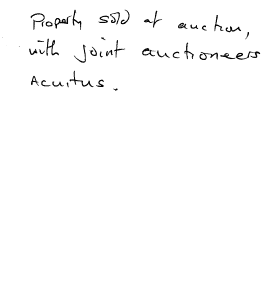 Property sold at auction,
with joint auctioneers
Acuitus.